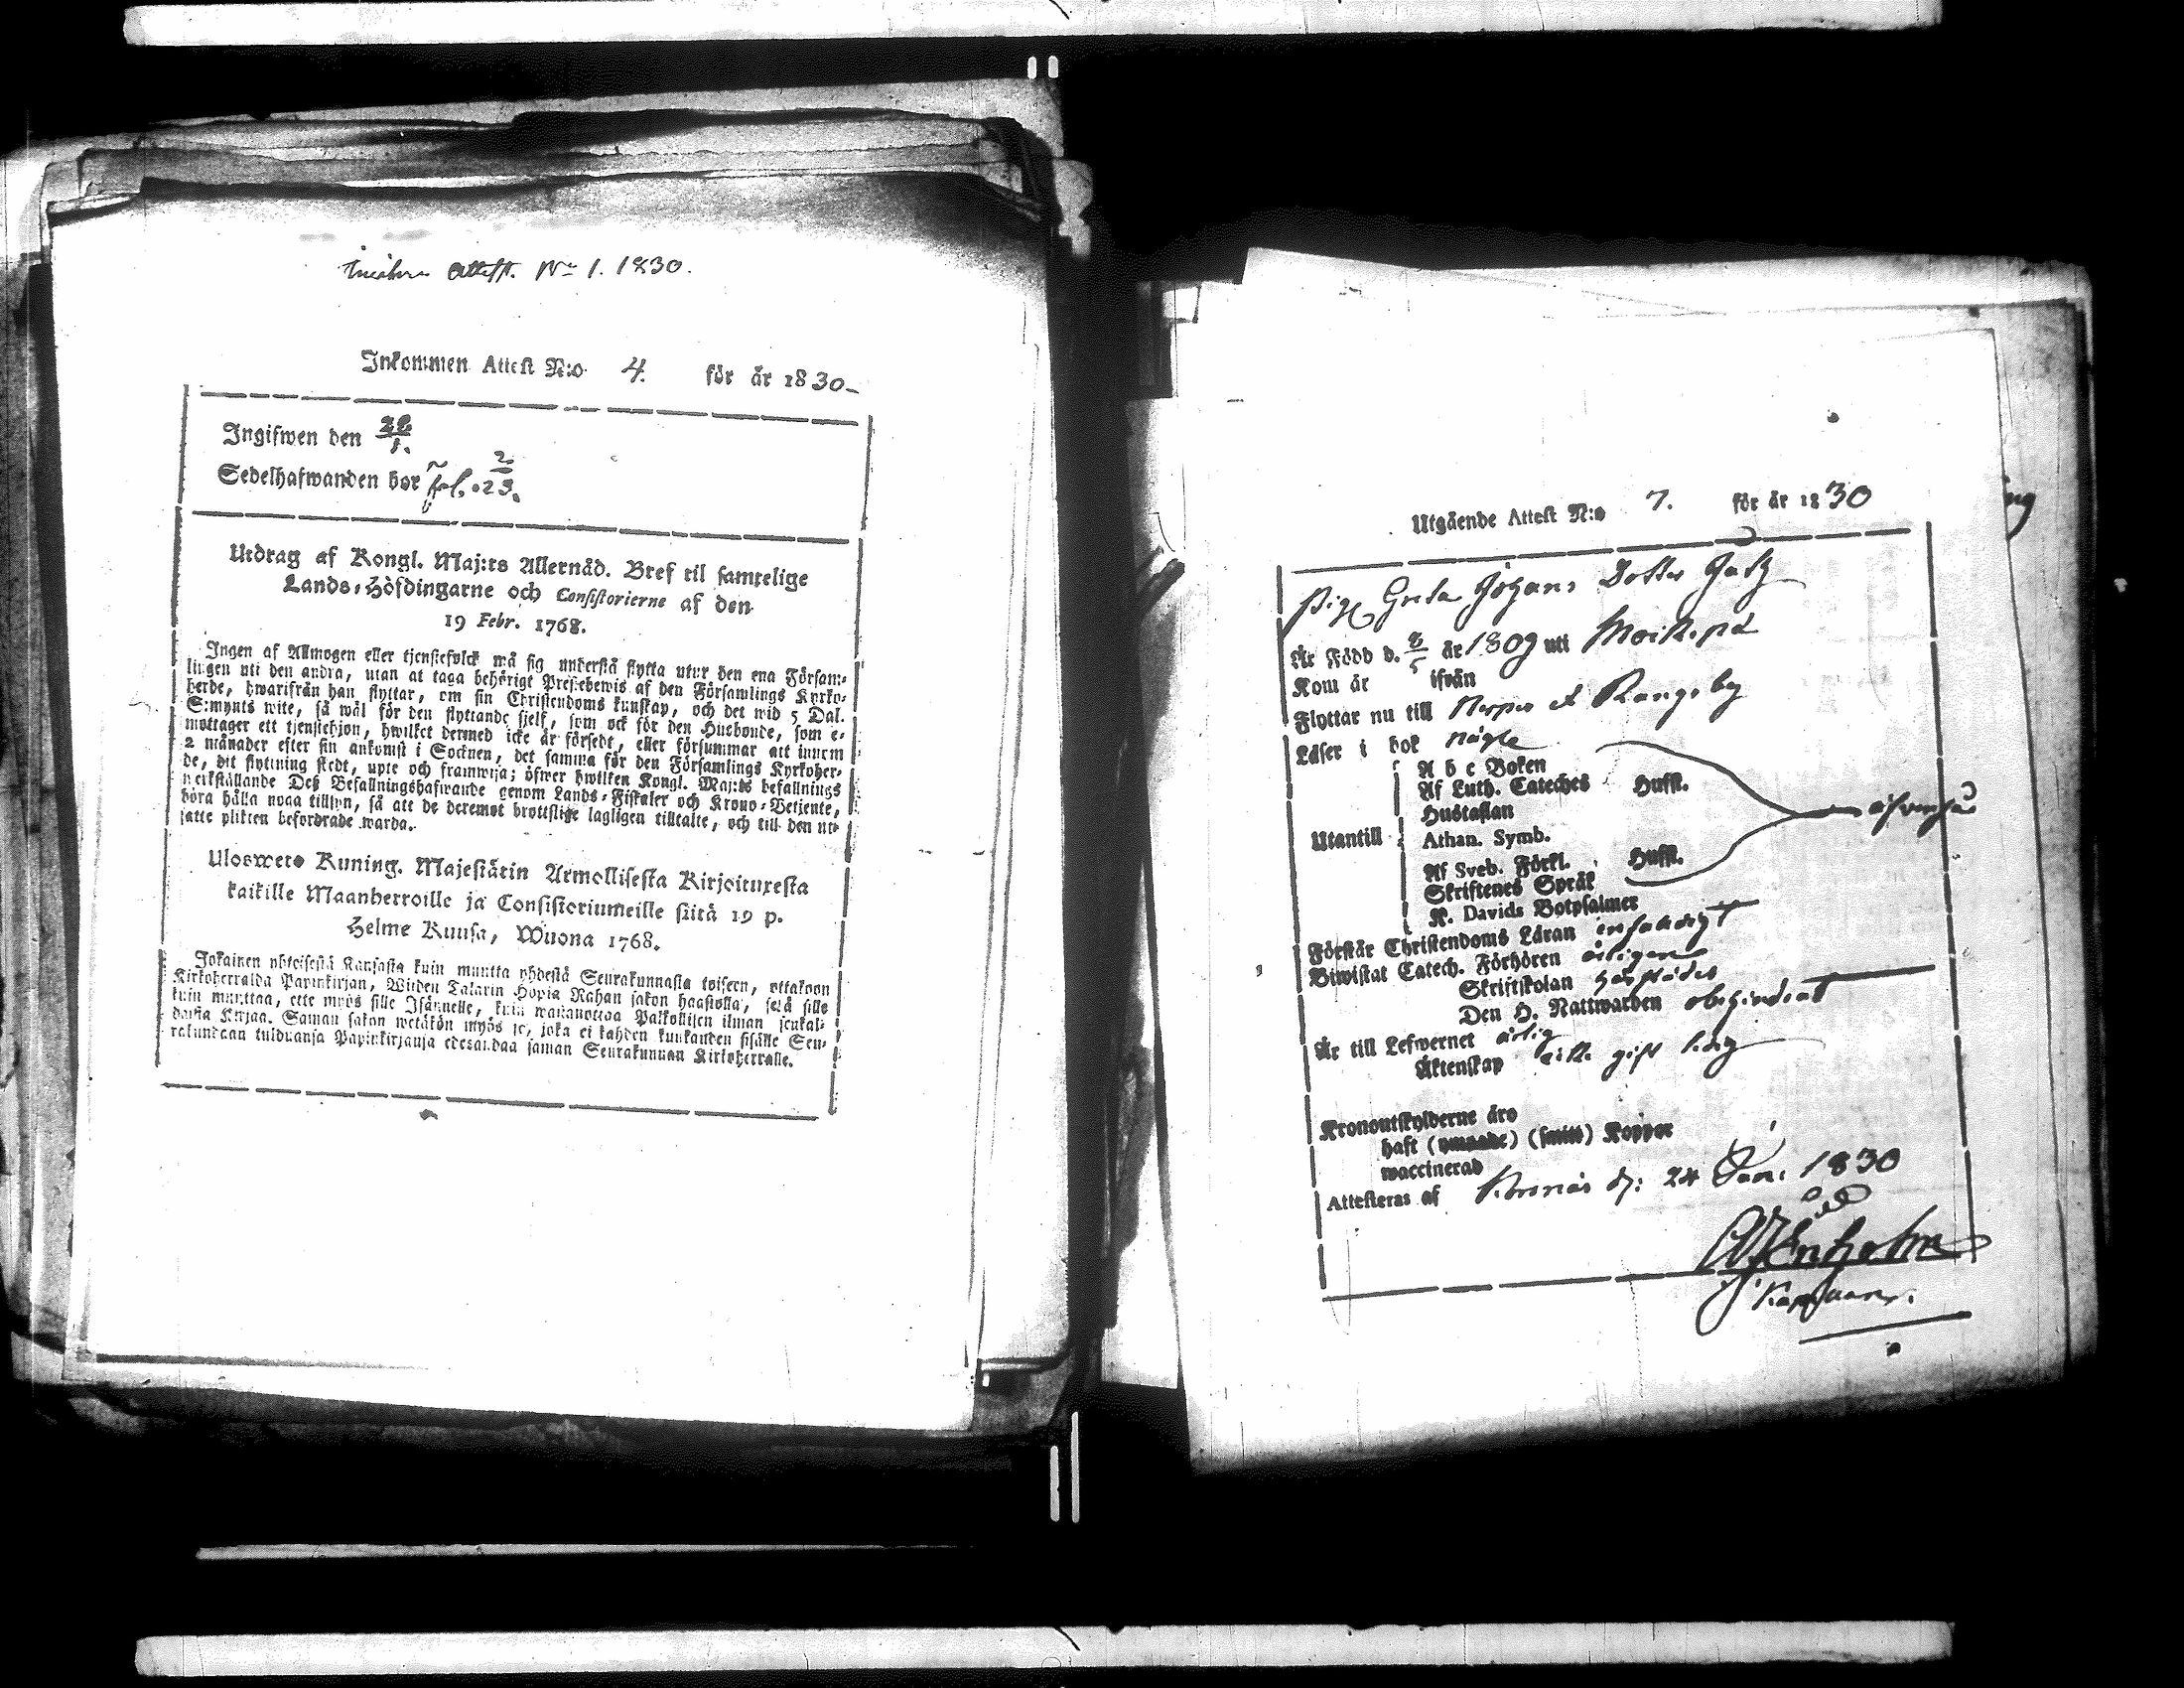 Attest. No 1. 1830.
Inkommen Attest N:o 4. för år 1830
Ingifwen den 28/1.
Sedelhafwanden bor fol. 23.
Utdrag af Kongl. Maj:ts Allernåd. Bref til samtelige
Lands-Höfdingarne och Consistorierne af den
19 Febr. 1768.
Ingen af Allmogen eller tjenstefolck må sig understå flytta utur den ena Försam-
lingen uti den andra, utan at taga behörigt Prestebewis af den Församlings Kyrko-
herde, hwarifrån han flyttar, om sin Christendoms kunskap, och det wid 5 Dal.
S:mynts wite, så wäl för den flyttande sjelf, som ock för den Husbonde, som e-
mottager ett tjenstehjon, hwilket dermed icke är försedt, eller försummar att innom
2 månader efter sin ankomst i Socknen, det samma för den Församlings Kyrkoher-
de, dit flyttning skedt, upte och framwisa; öfwer hwilken Kongl. Maj:ts befallnings
werkställande Deß Befallningshafwande genom Lands-Fiskaler och Krono-Betjente,
böra hålla noga tillsyn, så att de deremot brottslige lagligen tilltalte, och till den ut-
satte plikten befordrade warda.
Ulosweto Kuning. Majestätin Armollisesta Kirjoituxesta
kaikille Maanherroille ja Consistoriumeille siitä 19 p.
Helme Kuusa, Wuona 1768.
Jokainen yhteisestä Kansasta kuin muutta yhdestä Seurakunnasta toiseen, ottakoon
Kirkoherralda Papinkirjan, Wiiden Talarin Hopia Rahan sakon haastolla, sekä sille
kuin muuttaa, ette myös sille Isännelle, kuin wastanottaa Palkollisen ilman senkal-
daista Kirjaa. Saman sakon wetäkön myös se, joka ei kahden kuukauden sisälle Seu-
rakundaan tulduansa Papinkirjansa edesandaa saman Seurakunnan Kirkoherralle.
Utgående Attest N:o 7. för år 1830
Pig. Greta Johans Dotter
Är Född d. 8/5 år 1809 uti
Kom år ifrån
Flyttar nu till Rangsby
Läser i bok någre
A b c Boken
Af Luth. Cateches Hufst.
Hustaflan
Utantill Athan. Symb.
Af Sveb. Förkl. Hufst.
Skriftenes Språk
K. Davids Botpsalmer
Förstår Christendoms Läran enfaldigt
Biwistat Catech. Förhören årligen
Skriftskolan härstädes
Den H. Nattwarden obehindrat
Är till Lefwernet ärlig
Äktenskap gift ledig
Kronoutskylderne äro
haft (ymnade) (smitt) Koppor
waccinerad
Attesteras af d: 24 Jan. 1830